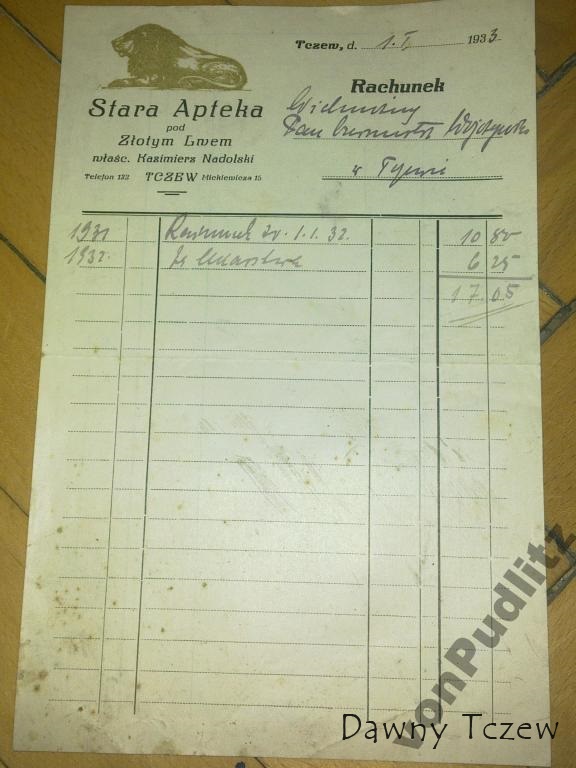 Tczew, d. 1. I. 1933
Rachunek
Stara Apteka
pod
Złotym Lwem
właśc. Kazimierz Nadolski
Telefon 132 TCZEW Mickiewicza 15
Wielmożny
Pan
w Tczewie
1931 Rachunek z 1.1.32. 10 80
1932. lekarstwa 6 25
17.05
vonPudlitz
Dawny Tczew